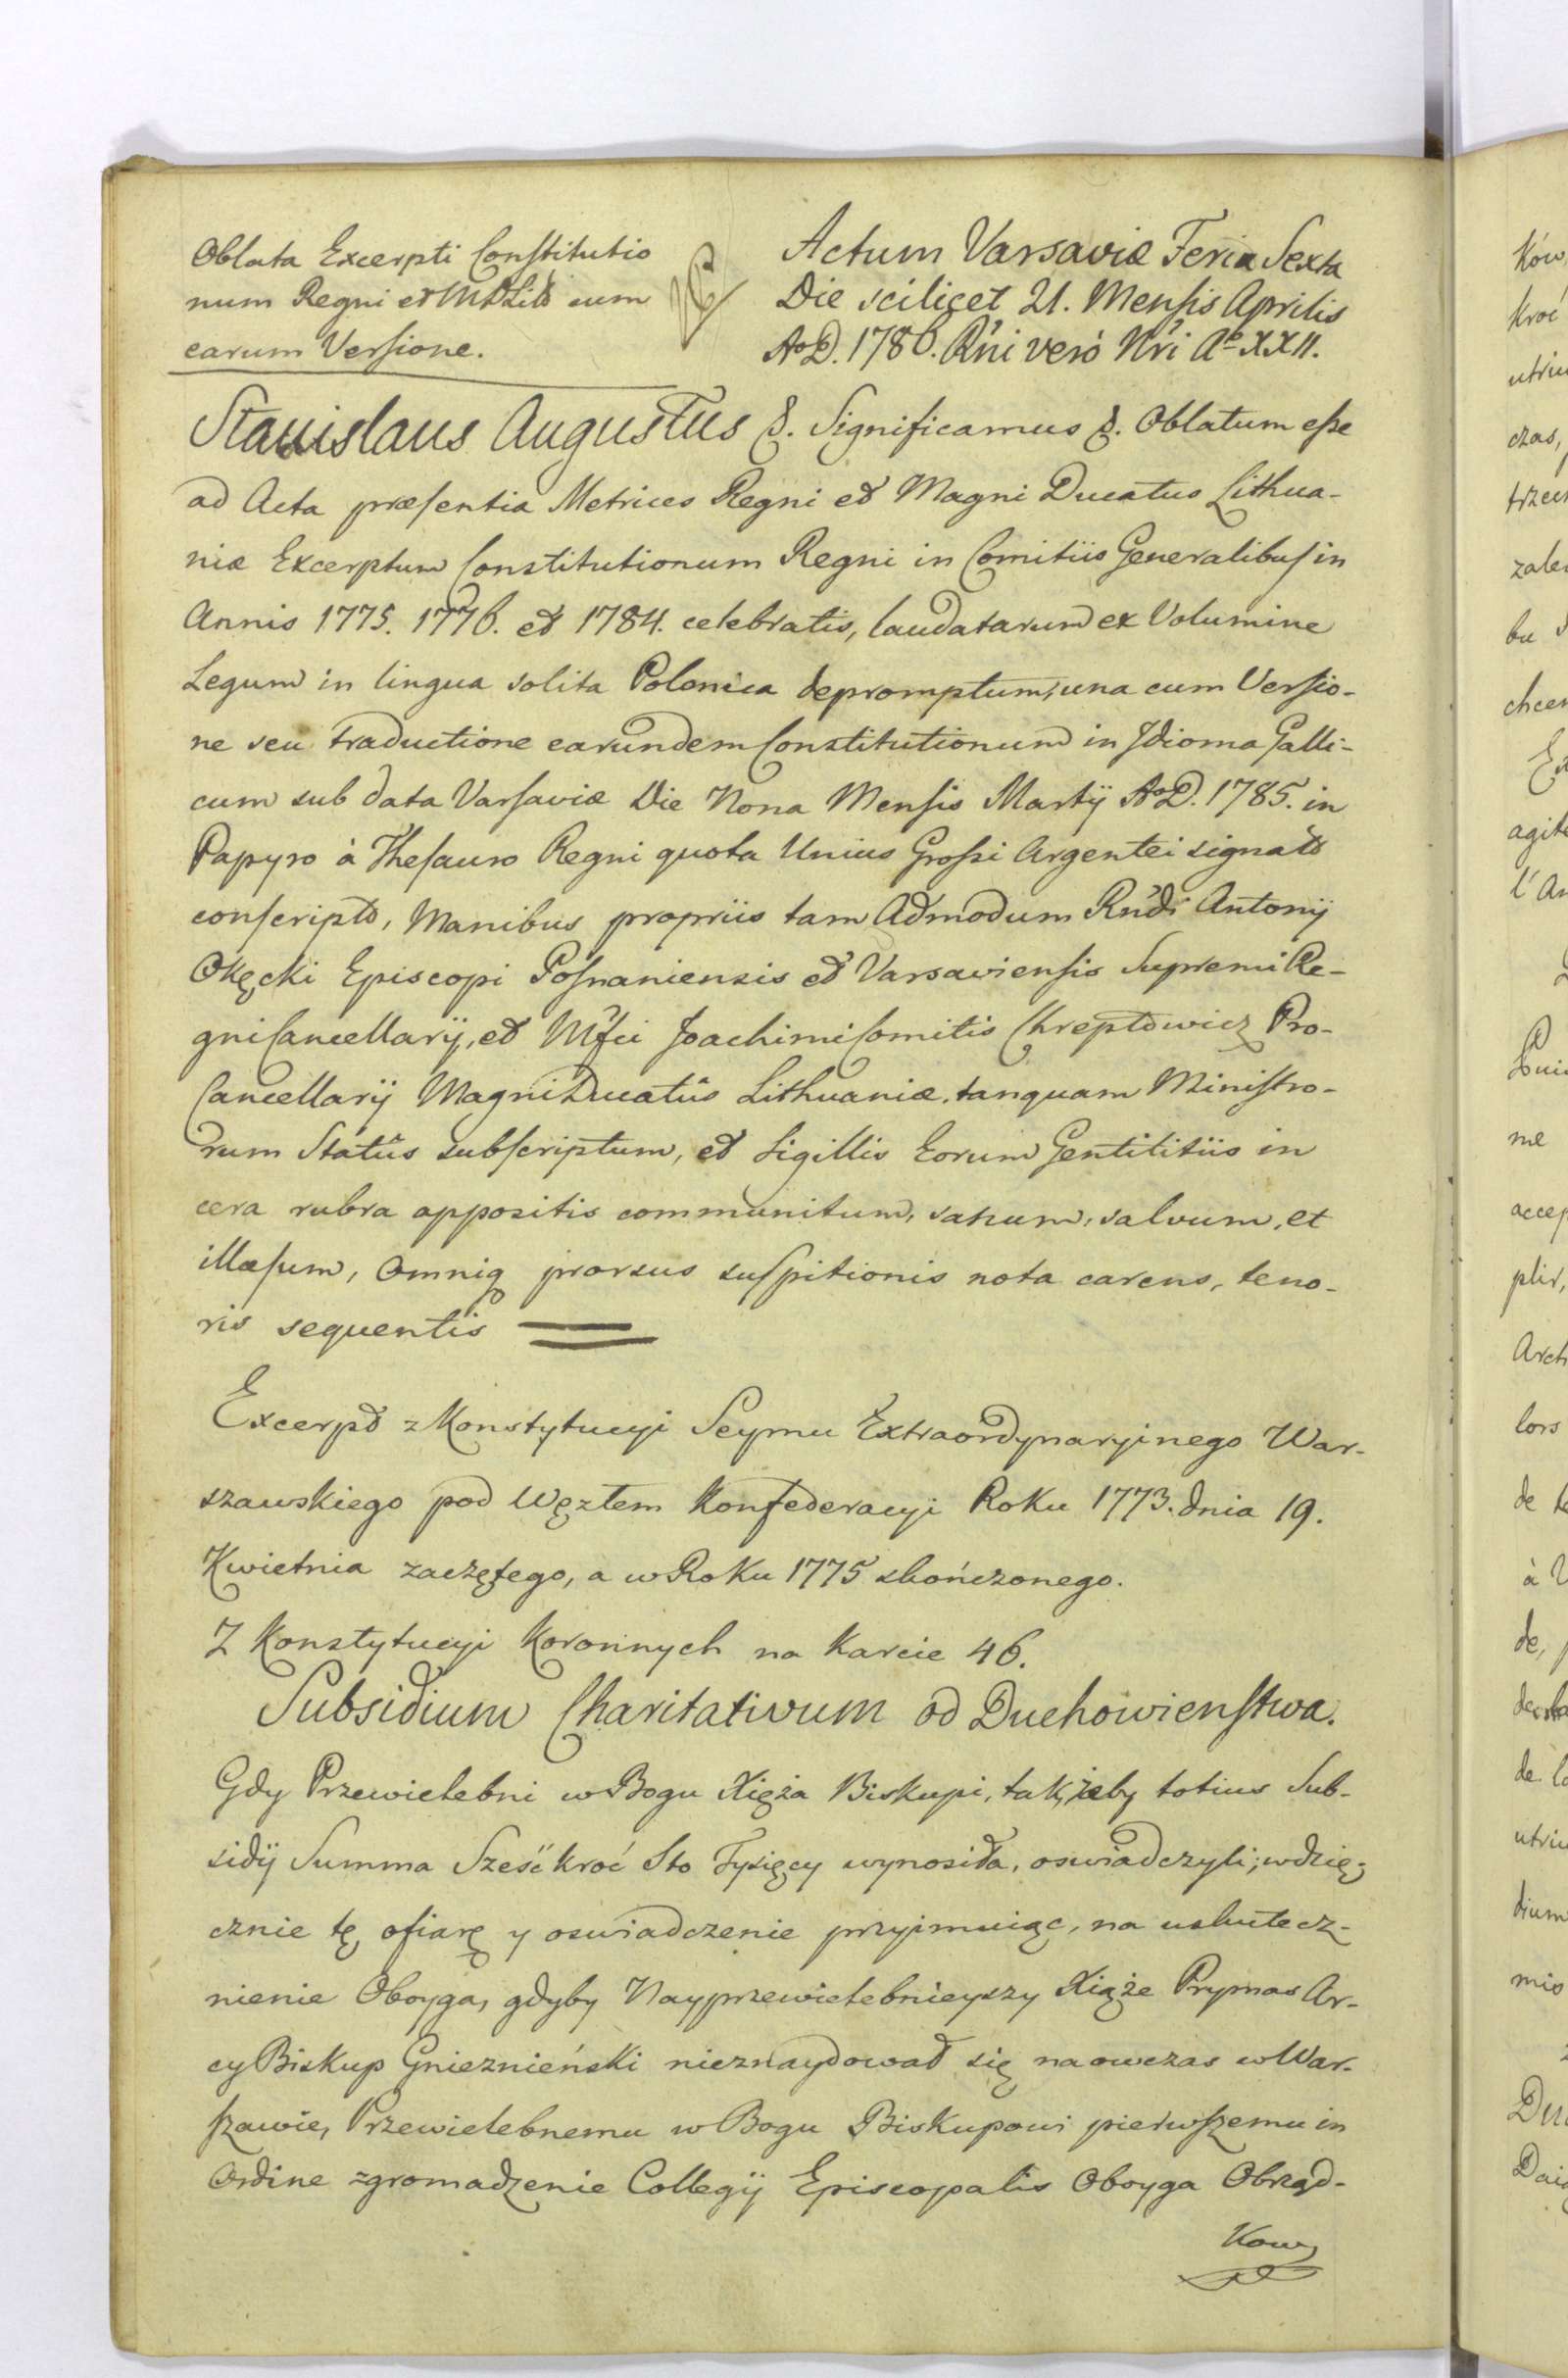 Oblata Excerpti Constitutio
num Regni et M D Litt cum
earum Versione.
Actum Varsaviæ Feria Sexta
Die scilicet 21. Mensis Aprilis
Ao D. 1786. Rńi verò Nŕi Ao XXII.
Stanislaus Augustus &. Significamus &. Oblatum esse
ad Acta præsentia Metrices Regni et Magni Ducatus Lithua-
niæ Excerptum Constitutionum Regni in Comitiis Generalibus in
Annis 1775. 1776. et 1784. celebratis, laudatarum ex Volumine
Legum in lingua solita Polonica depromptum, una cum Versio-
ne seu traductione earundem Constitutionum in Idioma Galli-
cum sub data Varsaviæ Die Nona Mensis Martÿ Ao D. 1785. in
Papyro à Thesauro Regni quota Unius Grossi Argentei signato
conscripto, Manibus propriis tam Admodum Rńdi Antonÿ
Okęcki Episcopi Posnaniensis et Varsaviensis Supremi Re-
gni Cancellarÿ, et Mfci Joachimi Comitis Chreptowicz Pro-
Cancellarÿ Magni Ducatûs Lithuaniæ, tanquam Ministro-
rum Statûs subscriptum, et Sigillis Eorum Gentilitiis in
cera rubra appositis communitum, sanum, salvum, et
illæsum, Omniq prorsus suspitionis nota carens, teno-
ris sequentis
Excerpt z Konstytucyi Seymu Extraordynaryinego War-
szawskiego pod Węzłem Konfederacyi Roku 1773. dnia 19.
Kwietnia zaczętego, a w Roku 1775 skończonego.
Z Konstytucyi Koronnych na Karcie 46.
Subsidium Charitativum od Duchowienstwa.
Gdy Przewielebni w Bogu Xięża Biskupi, tak, żeby totius Sub-
sidÿ Summa Sześćkroć Sto Tysięcy wynosiła, oswiadczyli; wdzię-
cznie tę ofiarę y oswiadczenie przyimuiąc, na uskutecz-
nienie Oboyga, gdyby Nayprzewielebnieyszy Xiąże Prymas Ar-
cy Biskup Gniezniénski nieznaydował się naowczas w War-
szawie, Przewielebnemu w Bogu Biskupowi pierwszemu in
Ordine zgromadzenie Collegÿ Episcopalis Oboyga Obrząd-
Kow